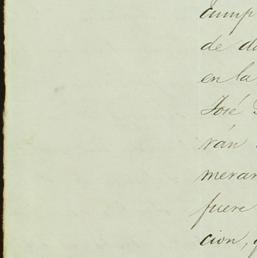 cump
de d
en la
José
rán
meran
fuere
cion, q